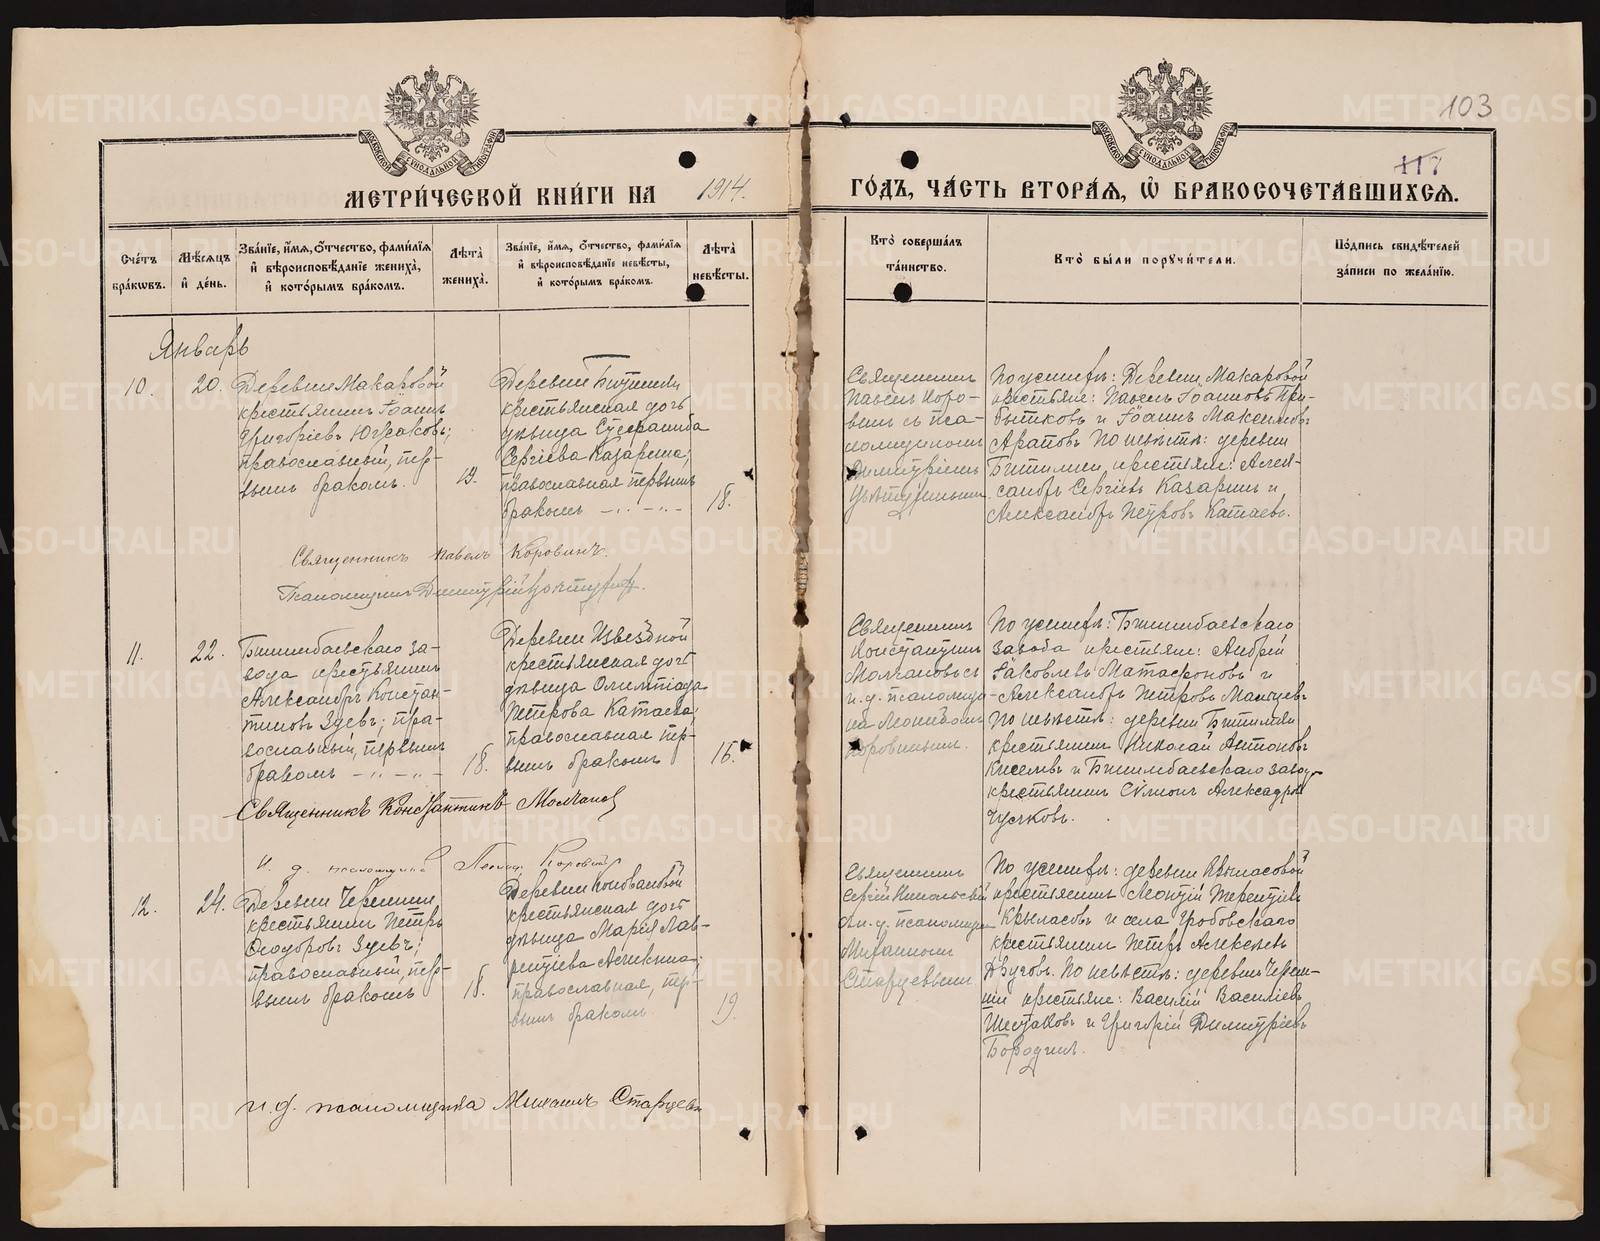 103
117
МЕТРИ́ЧЕСКОЙ КНИ́ГИ НА 1914. ГО́ДЪ, ЧА́СТЬ ВТОРА́Я, Ѡ҆ БРАКОСОЧЕТА́ВШИХСЯ.
Сче́тъ бра́кѡвъ.
Мѣ́сяцъ и҆ де́нь.
Зва́нїе, и҆́мя, ѻ҆́тчество, фами́лїя
и҆ вѣроисповѣ́данїе жениха̀,
и҆ кото́рымъ бра́комъ.
Лѣ́та жениха̀.
Зва́нїе, и҆́мя, ѻ҆́тчество, фами́лїя
и҆ вѣроисповѣ́данїе невѣ́сты,
и҆ кото́рымъ бра́комъ.
Лѣ́та невѣ́сты.
Кто̀ соверша́лъ
та́инство.
Кто̀ бы́ли порꙋчи́тели.
По́дпись свидѣ́телей
за́писи по жела́нїю.
Январь
10.
20.
Деревни Макаровой
крестьянинъ Іоаннъ
Григоріевъ Югжаковъ;
православный, пер-
вымъ бракомъ.
19.
Деревни Битимки
крестьянская дочь
дѣвица
Сергіева Казарина;
православная первымъ
бракомъ
18.
Священникъ
Павелъ Коро-
винъ съ пса-
ломщикомъ
Димитріемъ
По женихѣ: Деревни Макаровой
крестьяне: Павелъ Іоанновъ При-
бытковъ и Іоаннъ Максимовъ
Араповъ. По невѣстѣ: деревни
Битимки крестьяне: Алек-
сандръ Сергіевъ Казаринъ и
Александръ Петровъ Катаевъ.
Священникъ Павелъ Коровинъ.
Псаломщикъ Димитрій
11.
22.
Билимбаевскаго за-
вода крестьянинъ
Александръ Констан-
тиновъ Зуевъ; пра-
вославный, первымъ
бракомъ
18.
Деревни Извездной
крестьянская дочь
дѣвица Олимпіада
Петрова Катаева
православная пер-
вымъ бракомъ
16.
Священникъ
Константинъ
Молчановъ съ
и. д. псаломщи-
ка Леонидомъ
Коровинымъ.
По женихѣ: Билимбаевскаго
завода крестьяне: Андрей
Іаковлевъ Матафоновъ и
Александръ Петровъ Мальцевъ
По невѣстѣ: деревни Битимки
крестьянинъ Николай Антоновъ
Киселевъ и Билимбаевскаго завод.
крестьянинъ Сѵмеонъ Александровъ
Священникъ Константинъ Молчановъ
И. д. псаломщика Леонид Коровин
12.
24.
Деревни Черемши
крестьянинъ Петръ
Ѳеодоровъ Зуевъ;
православный, пер-
вымъ бракомъ
18.
Деревни Коноваловой
крестьянская дочь
дѣвица Марія Лав-
рентіева Аликина;
православная, пер-
вымъ бракомъ.
19.
Священникъ
Сергій Никольскій
и. д. псаломщика
Михаиломъ
Старцевымъ.
По женихѣ: деревни Крыласовой
крестьянинъ Леонтій Терентіевъ
Крыласовъ и села Гробовскаго
крестьянинъ Петръ Алексѣевъ
Друговъ. По невѣстѣ: деревни Черем-
ши крестьяне: Василій Василіевъ
Шестаковъ и Григорій Димитріевъ
Бородинъ.
и. д. псаломщика Михаилъ Старцевъ